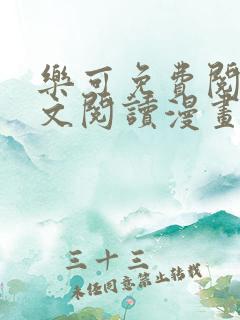 樂可免費閱
文閱讀漫畫
三十三
未经同意禁止转载